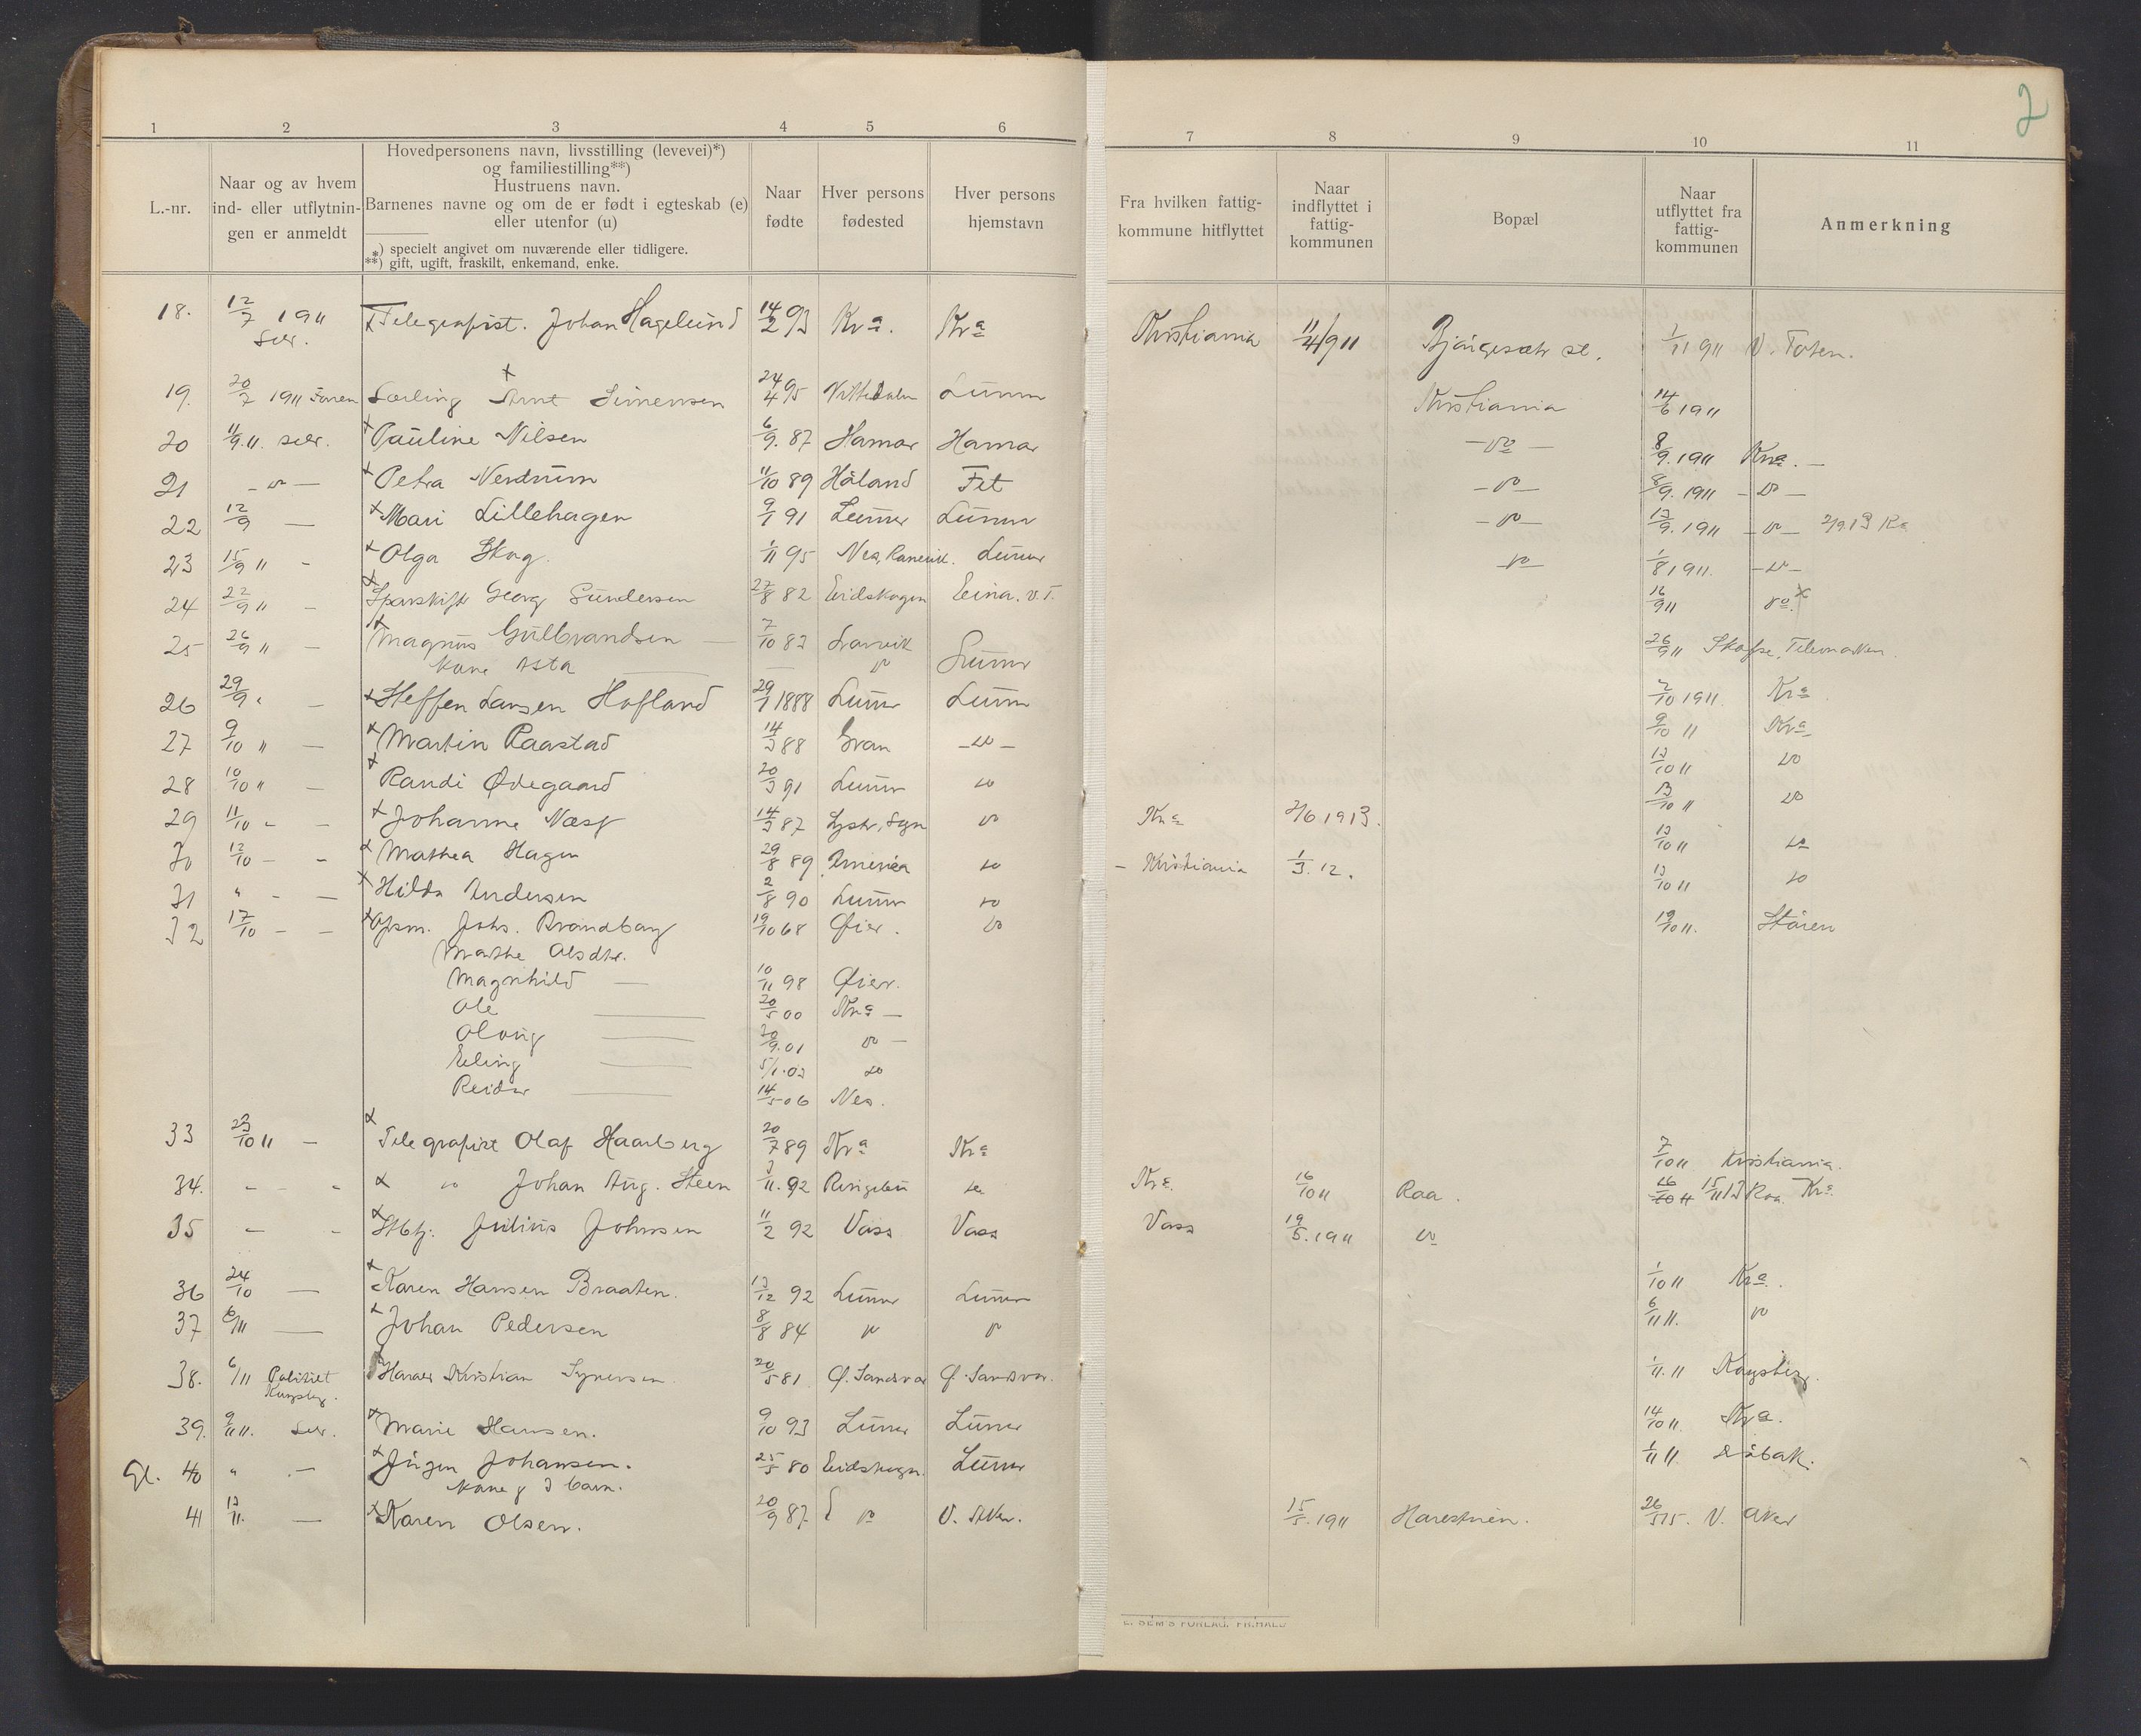 2
1 2 3 4 5 6 7 8 9 10 11
L.-nr.
Naar og av hvem
ind- eller utflytnin-
gen er anmeldt
Hovedpersonens navn, livsstilling (levevei)*)
og familiestilling**)
Hustruens navn.
Barnenes navne og om de er født i egteskab (e)
eller utenfor (u)
*) specielt angivet om nuværende eller tidligere.
**) gift, ugift, fraskilt, enkemand, enke.
Naar
fødte
Hver persons
fødested
Hver persons
hjemstavn
Fra hvilken fattig-
kommune hitflyttet
Naar
indflyttet i
fattig-
kommunen
Bopæl
Naar
utflyttet fra
fattig-
kommunen
Anmerkning
18. 12/7 1911 x Telegrafist. Johan Hagelund 14/2 93 Kra. Kra Kristiania 11/4 1911 Bjørgesæter st. 1/11 911 V. Toten.
Selv.
19. 20/7 1911 Lærling x Arnt Simensen 24/4 95 Nittedalen Lunner Kristiania 14/6 1911
20 11/9. 11. selv. x Pauline Nilsen 6/9. 87 Hamar Hamar — do — 8/9. 1911 Kra. —
21 - do — x Petra Nerdrum 11/10 89 Håland Fet - do — 8/9. 1911 - do —
22 12/9 — x Mari Lillehagen 9/1 91 Lunner Lunner - do — 13/9. 1911 - do — 2/9.13 Kra
23 15/9 11 - x Olga Skog. 1/11 95 Nes, Romerik. Lunner do 1/8 1911. - do -
24 22/9 11 - x Sporskifter Georg Gundersen 27/8 82 Eidskogen Eina. V.T. 16/9 11 do. x
25 26/9 11 - x Magnus Gulbrandsen — 7/10 83 Larvik 26/9 11 Skafse, Telemarken.
Kone Asta — do Lunner
26 29/9 " - x Steffen Larsen Hofland 29/1 1888 Lunner Lunner 2/10 1911. Kra
27 9/10 11 — x Martin Raastad 14/3 88 Gran - do - 9/10 11 Kra
28 10/10 " — x Randi Ødegaard 20/3 91 Lunner do 13/10 11 do
29 11/10 " - x Johanne Næss 14/3 87 Lyster, Sogn do Kra 2/6 1913. 13/10 11 do
30 12/10 - - x Mathea Hagen 29/8 89 Amerika do - Kristiania 1/3. 12. 13/10 11 do
31 " - - x Hilda Andersen 2/8 90 Lunner do 13/10 11 do
32 17/10 - - x Opsm. Johs. Brandborg 19/10 68 Øier. do 19/10 11. Støren
Marthe Olsdtr.
Magnhild — 10/11 98 Øier.
Ole — 20/5 00 Kra —
Olaug — 30/9. 01 do —
Erling — 5/1. 03 do
Reidar — 14/5 06 Nes.
33 23/10 11 - x Telegrafist Olaf Haarberg 20/7 89 Kra Kra 7/10 11 Kristiania.
34. - - - x " Johan Aug. Steen 3/11. 92 Ringebu do Kra. 16/10 11 Raa. 15/11 13 Roa. Kra.
35 - - x Stbtj. Julius Johnsen 11/2 92 Voss Voss Voss 19/5. 1911 do
36 24/10 — x Karen Hansen Braaten. 13/12 92 Lunner Lunner 1/10 11 Kra.
37 6/11 — x Johan Pedersen 8/8 84 do do 6/11 11. do
38. 6/11 Politiet x Harald Kristian Synersen 20/5 81 Ø. Sandsvær Ø. Sandsvær. 1/11. 11 Kongsberg.
Kongsbg.
39. 9/11 11. Selv. x Marie Hansen. 9/10 93 Lunner Lunner 14/10 11. Kra.
Gl. 40 " .- x Jørgen Johansen. 25/5 80 Eidskogn. Lunner 1/11 11.
Kone & 3 barn.
41 13/11. — x Karen Olsen. 20/9 87 do V. Aker. 15/5. 1911 Harestuen. 26/5 15. V. Aker
E. SEM'S FORLAG. FR.HALD